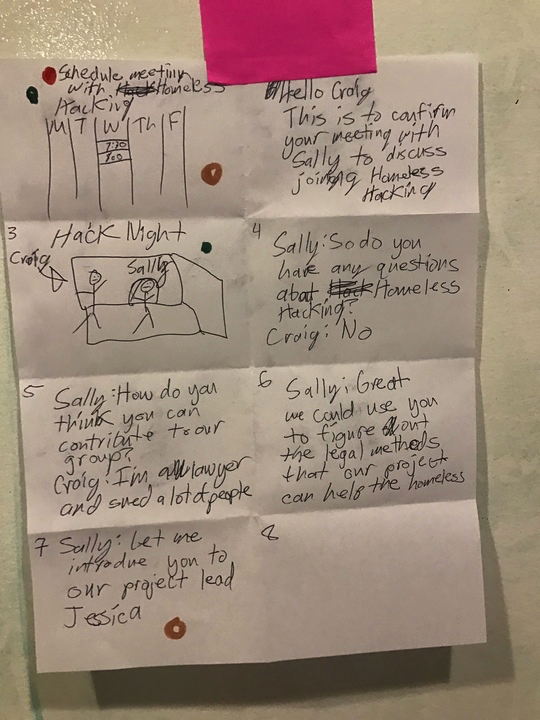 Schedule meeting
with Homeless
Hacking
M T W Th F
7:30
8:00
Hello Craig
This is to confirm
your meeting with
Sally to discuss
joining Homeless
Hacking
3
Hack Night
Craig
Sally
4
Sally: So do you
have any questions
abat Homeless
Hacking?
Craig: No
5
Sally: How do you
think you can
contribute to our
group?
Craig: I'm a lawyer
and sued a lot of people
6
Sally: Great
we could use you
to figure out
the legal methods
that our project
can help the homeless
7
Sally: Let me
introdue you to
our project lead
Jessica
8